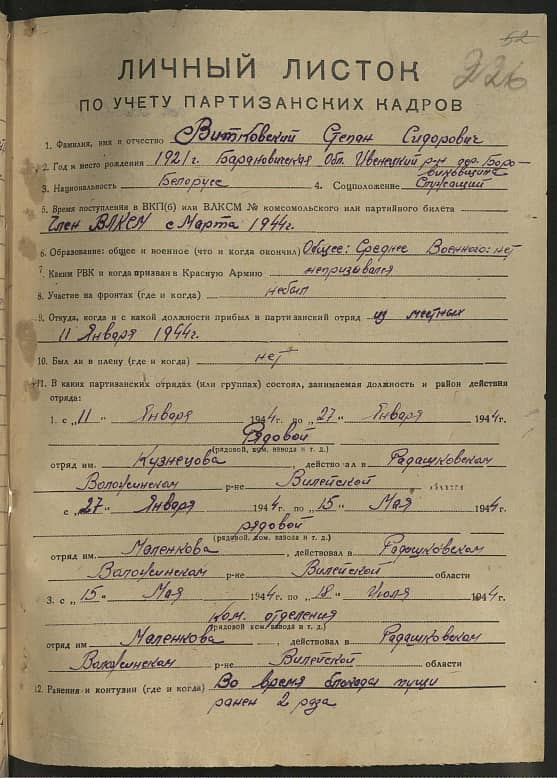 52
226
ЛИЧНЫЙ ЛИСТОК
ПО УЧЕТУ ПАРТИЗАНСКИХ КАДРОВ
1. Фамилия, имя и отчество Витковский Степан Сидорович
2. Год и место рождения 1921 г. Барановичская Обл. Ивенецкий р-н дер. Боро-
виковщина
3. Национальность Белорусс 4. Соцположение Служащий
5. Время поступления в ВКП(б) или ВЛКСМ № комсомольского или партийного билета
Член ВЛКСМ с Марта 1944г.
6. Образование: общее и военное (что и когда окончил) Общее: Среднее Военного: нет
7. Каким РВК и когда призван в Красную Армию непризывался
8. Участие на фронтах (где и когда) небыл
9. Откуда, когда и с какой должности прибыл в партизанский отряд из местных
11 Января 1944г.
10. Был ли в плену (где и когда) нет
11. В каких партизанских отрядах (или группах) состоял, занимаемая должность и район действия
отряда:
1. с „11" Января 1944г. по „27" Января 1944г.
Рядовой
(рядовой, ком. взвода и т. д.)
отряд им. Кузнецова, действовал в Радашковском
Воложинском р-не Вилейской области
с „27" Января 1944г. по „15" Мая 1944г.
рядовой
(рядовой, ком. взвода и т. д.)
отряд им. Маленкова, действовал в Радашковском
Воложинском р-не Вилейской области
3. с „15" Мая 1944г. по „18" Июля 1944г.
Ком. отделения
(рядовой ком. взвода и т. д.)
отряд им Маленкова, действовал в Радашковском
Воложинском р-не Вилейской области
12. Ранения и контузии (где и когда) Во время блокады пущи
ранен 2 раза